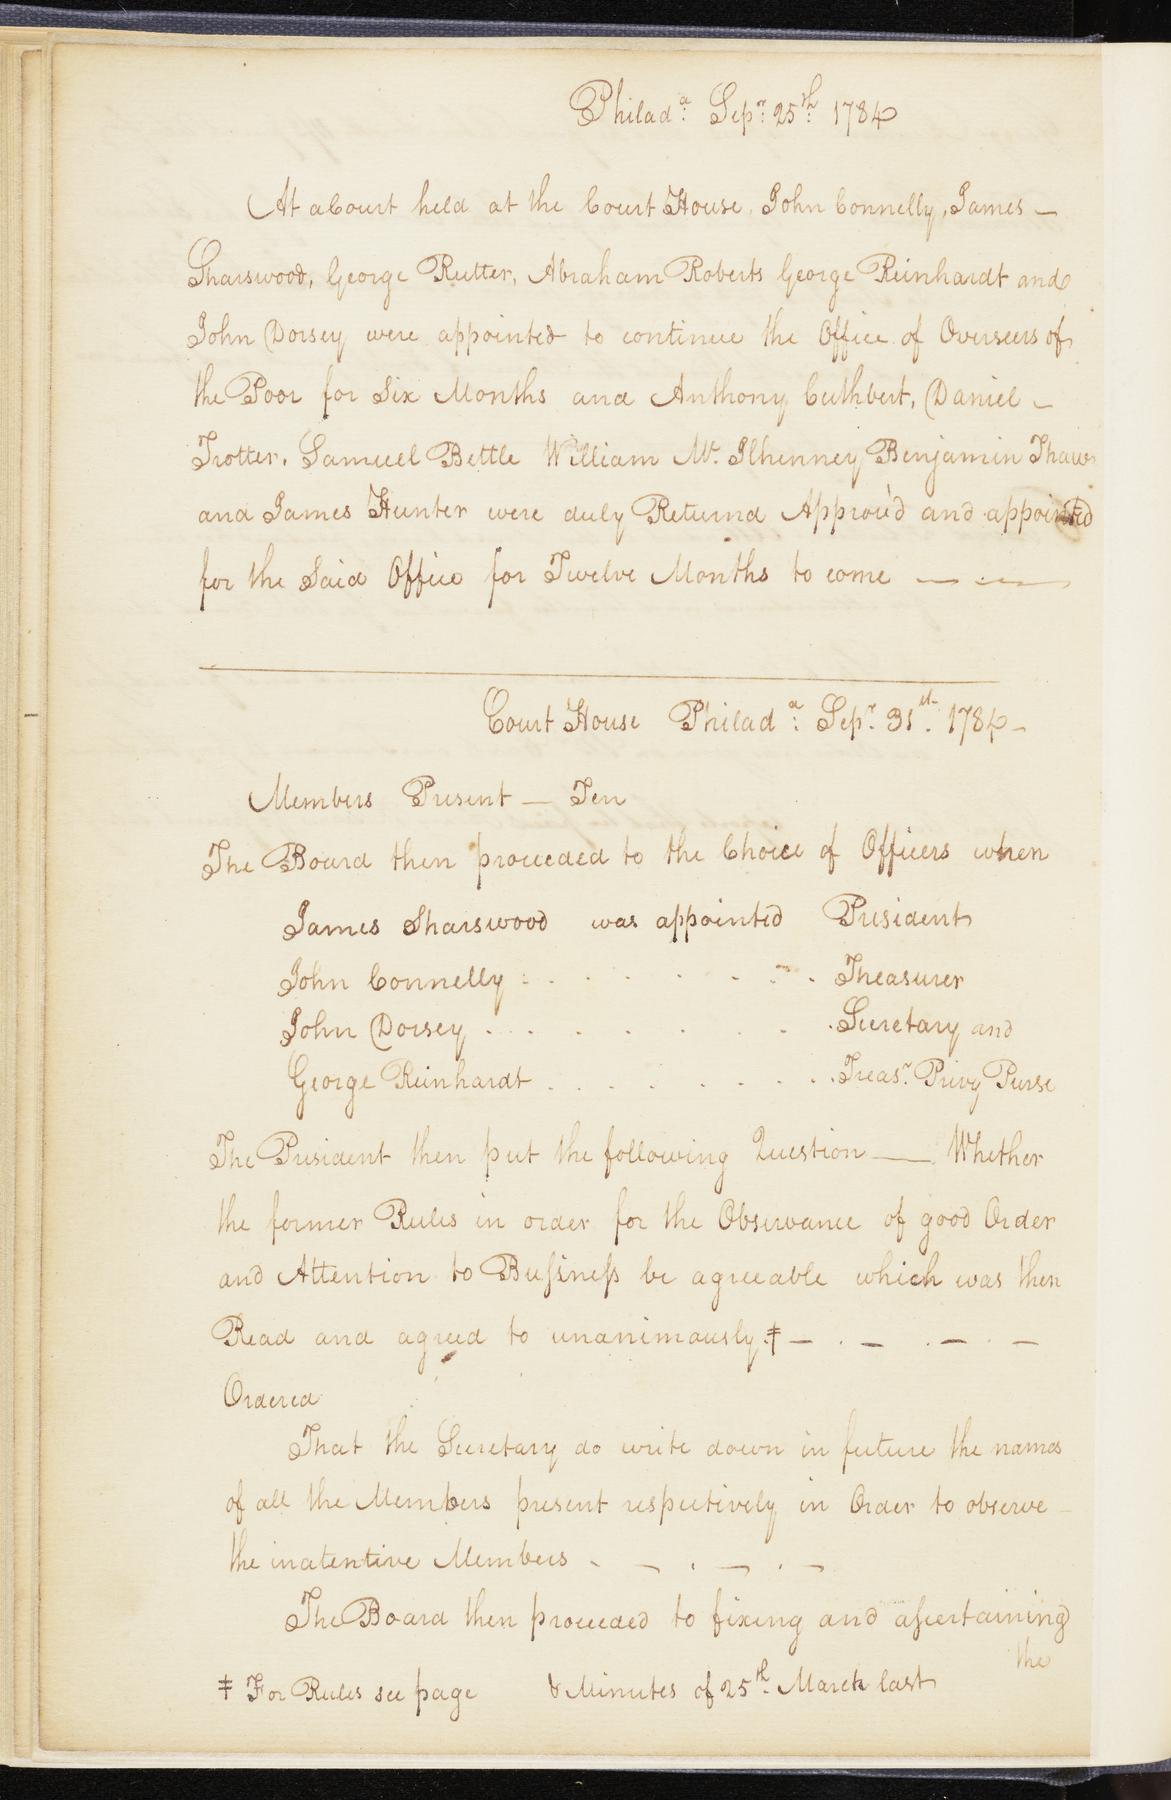 Philadᵃ: Sepʳ: 25ᵗʰ: 1784
At a Court held at the Court House, John Connelly, James –
Sharswood, George Rutter, Abraham Roberts George Reinhardt and
John Dorsey were appointed to continue the Office of Overseers of
the Poor for Six Months and Anthony Cuthbert, Daniel –
Trotter, Samuel Bettle William Mc. Ilhenney Benjamin Thaw
and James Hunter were duly Returnd Approv'd and appointed
for the Said Office for Twelve Months to come — — —
Court House Philadᵃ: Sepʳ: 31ˢᵗ. 1784 –
Members Present — Ten
The Board then proceeded to the Choice of Officers when
James Sharswood was appointed President
John Connelly : . . . . . . Treasurer
John Dorsey . . . . . . . . Secretary and
George Reinhardt . . . . . . . . Treasʳ. Privy Purse
The President then put the following Question — Whether
the former Rules in order for the Observance of good Order
and Attention to Buſineſs be agreeable which was then
Read and agreed to unanimously.‡ – . – . – . –
Ordered
That the Secretary do write down in future the names
of all the Members present respectively in Order to observe –
the inatentive Members - – . – . –
The Board then proceeded to fixing and aſcertaining
the
‡ For Rules see page & Minutes of 25ᵗʰ. March last